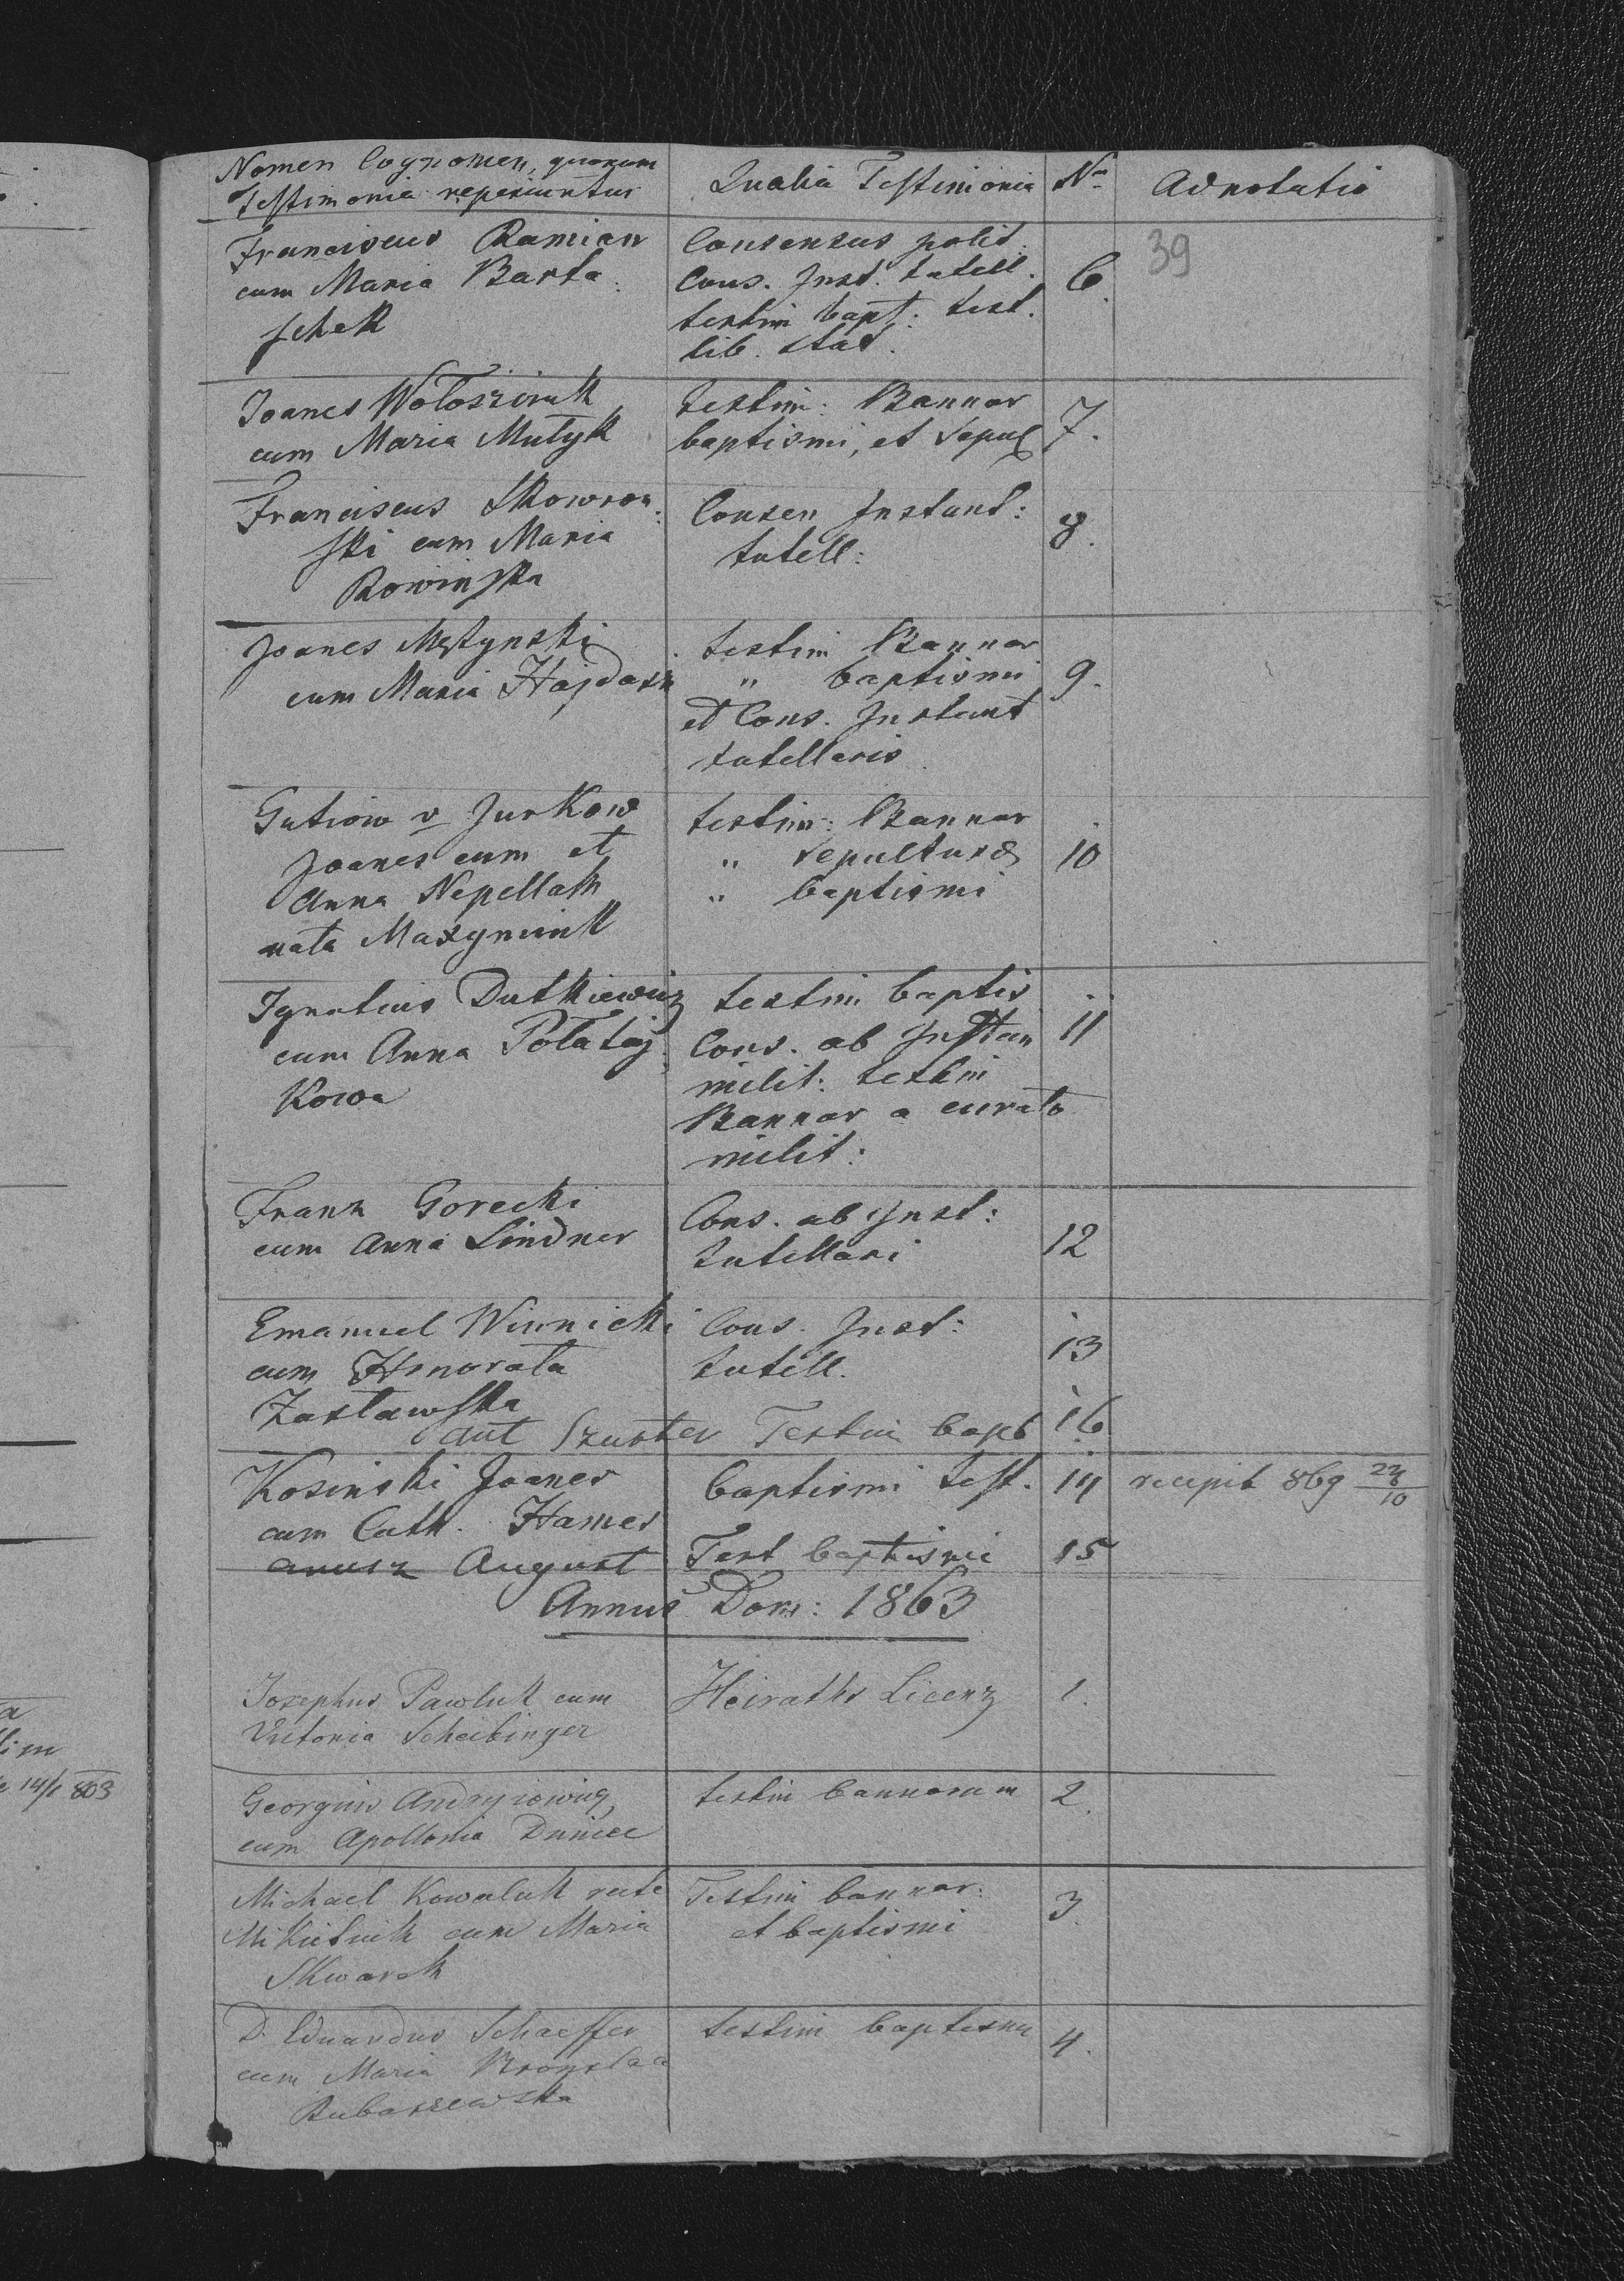 Nomen Cognomen, quorum
Testimonia reperiuntur
Qualia Testimonia
Nr
Adnotatio
39
Franciscus Ramian
cum Maria Barta
schek
Consensus polit.
Cons. Inst. tutell.
testim bapt: test.
lib. stat.
6.
Joanes Wołoszinuk
cum Maria Mutyk
testim: Bannor
baptismi, et Sepul
7.
Franciscus Skowron
ski cum Maria
Rowinska
Consen Instant:
tutell:
8.
Joanes Mętynski
cum Maria Hajdasz
testim Bannor
" baptismi
et Cons. Instant
tutellaris
9.
Gutiow v Jurkow
Joanes cum et
Anna Nepellak
nata Maxymiuk
testim: Bannor
" sepulturæ
" baptismi
10
Ignatius Dutkiewicz
cum Anna Połataj
kowa
testim baptis
Cons. ab Instan
milit: testim
Bannor a curato
milit:
11
Franz Gorecki
cum Anna Lindner
Cons. ab Inst:
tutellari
12
Emanuel Winnicki
cum Honorata
Zasławska
Cons. Inst:
tutell.
13
Ant Szuster Testim bapt 16
Kosinski Joanes
cum Cath. Hames
baptismi test.
14
recepit 869 22/10
August
Test baptismi
15
Annus Dom: 1863
Josephus Pawluk cum
Victoria Scheibinger
Heiraths Licenz
1.
Georgius Andryiowicz
cum Apollonia Duniec
testim bannorum
2.
Michael Kowaluk recte
Mikitiuk cum Maria
Skwarek
Testim bannor:
et baptismi
3.
D. Eduardus Schaeffer
cum Maria
Rubaszewska
testim baptismi
4.
14/1 803